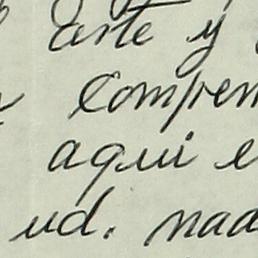 arte y
compren
aqui e
ud. nad